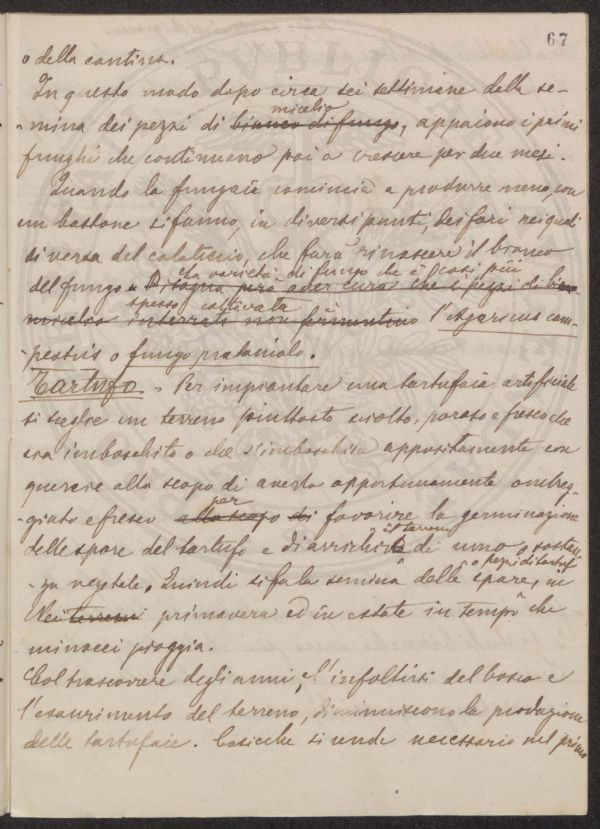 67
o della cantina.
In questo modo dopo circa sei settimane dalla se-
micelio
-mina dei pezzi di bianco di fungo, appaiono i primi
funghi che continuano poi a crescere per due mesi.
Quando la fungaie comincia a produrre meno, con
un bastone si fanno, in diversi punti, dei fori nei quali
si versa del calaticcio, che farà rinascere il bianco
La varietà di fungo che è così più
del fungo. Bisogna però aver cura che i pezzi di bian-
spesso coltivata è
micelio interrati non fermentino l'Agaricus cam-
-pestris o fungo prataiolo.
Tartufo - Per impiantare una tartufaia artificiale
si sceglie un terreno piuttosto sciolto, poroso e fresco che
sia imboschito o che s'imboschisce appositamente con
quercie allo scopo di averlo opportunamente ombreg-
per
-giato e fresco allo scopo di favorire la germinazione
il terreno
delle spore del tartufo e di arricchire di umo o sostan-
o pezzi di tartufi
-za vegetale. Quindi si fa la semina delle spore, in
Nei terreni primavera ed in estate in tempo che
minacci pioggia.
Col trascorrere degli anni, l'infoltirsi del bosco e
l'esaurimento del terreno, diminuiscono la produzione
delle tartufaie. Cosicchè si rende necessario nel primo